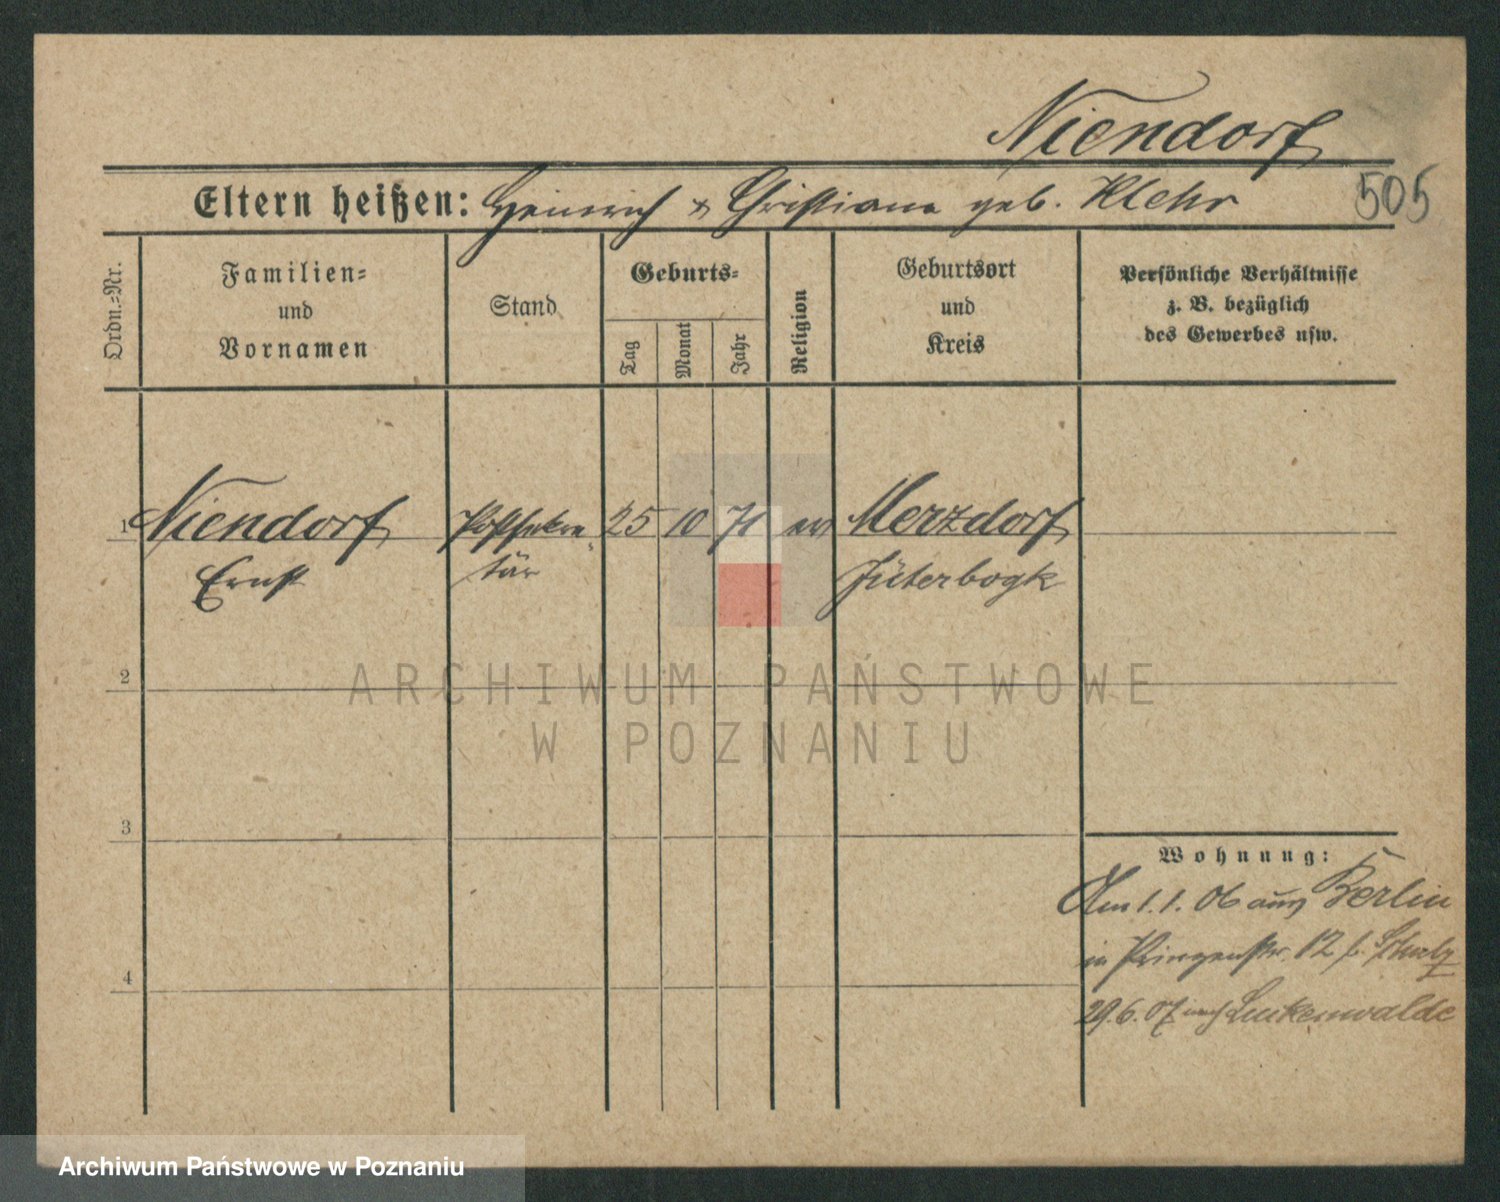 Niendorf
Eltern heißen: Heinrich & Christiana geb. Klehr
505
Ordn.=Nr.
Familien=
und
Vornamen
Stand
Geburts=
Tag
Monat
Jahr
Religion
Geburtsort
und
Kreis
Persönliche Verhältnisse
z. B. bezüglich
des Gewerbes usw.
1 Niendorf Postsekre- 25 10 71 ev Merzdorf
Ernst tär Jüterbogk
2
ARCHIWUM PAŃSTWOWE
W POZNANIU
3
Wohnung:
Am 1.1.06 aus Berlin
in Prinzenstr. 12 b. Schulz
4
29.6.07 nach Luckenwalde
Archiwum Państwowe w Poznaniu